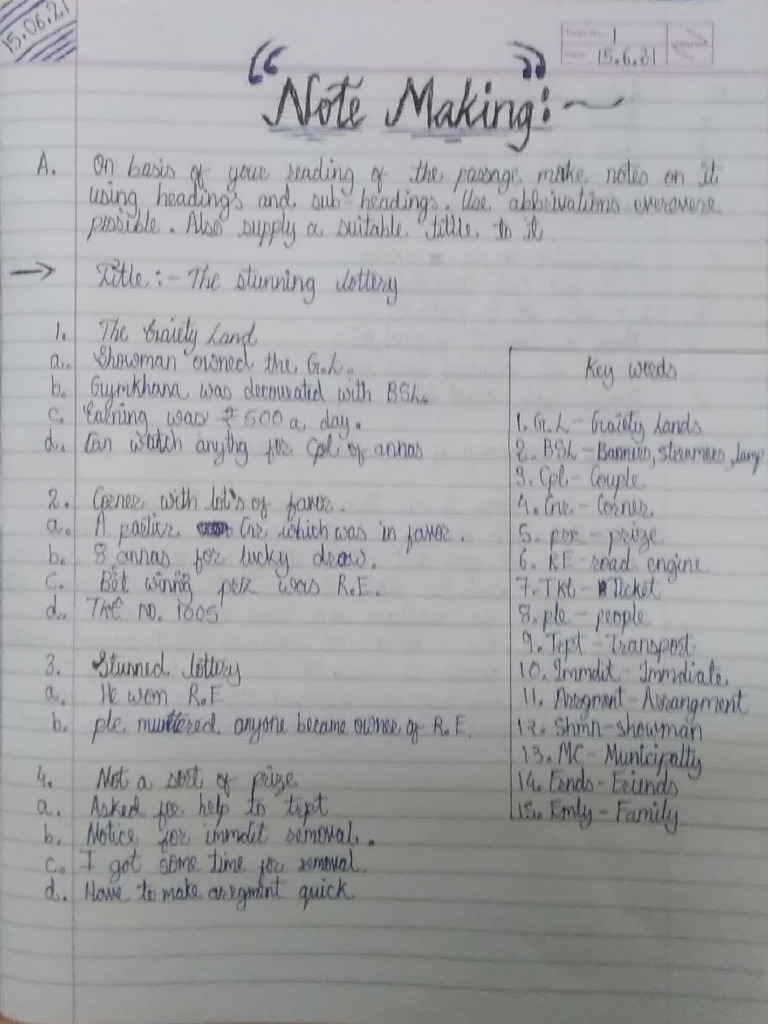 15.06.21
1
15.6.21
"Note Making:~
A. On basis of your reading of the passage make notes on it
using headings and sub-headings. Use abbrivations everavere
possible. Also supply a suitable title to it
→ Title:- The stunning lottery
1. The Graiety Land
a. Showman owned the G.L.
b. Gymkhana was decourated with BSL.
c. Earning was ₹500 a day.
d. Can watch anythg for Cpl of annas
2. Corner with lot's of favor.
a. A partier Cnr which was in favor.
b. 8 annas for lucky draw.
c. Bst winng was R.E.
d. Tkt no. 1005
3. Stunned lottery
a. He won R.E
b. ple muttered anyone became owner of R.E.
4. Not a sort of prize
a. Asked for help to tspt
b. Notice for immdit removal.
c. I got some time for removal.
d. Have to make arregmnt quick
Key words
1. G.L - Graiety Lands
2. BSL - Banners, steamers, lamp
3. Cpl - Couple
4. Cnr - Corner
5. - prize
6. RE - road engine
7. Tkt - Ticket
8. ple - people
9. Tspt - Transport
10. Immdit - Immdiate
11. Arregmnt - Arrangment
12. Shmn - showman
13. MC - Municipalty
14. Frnds - Friends
15. Fmly - Family